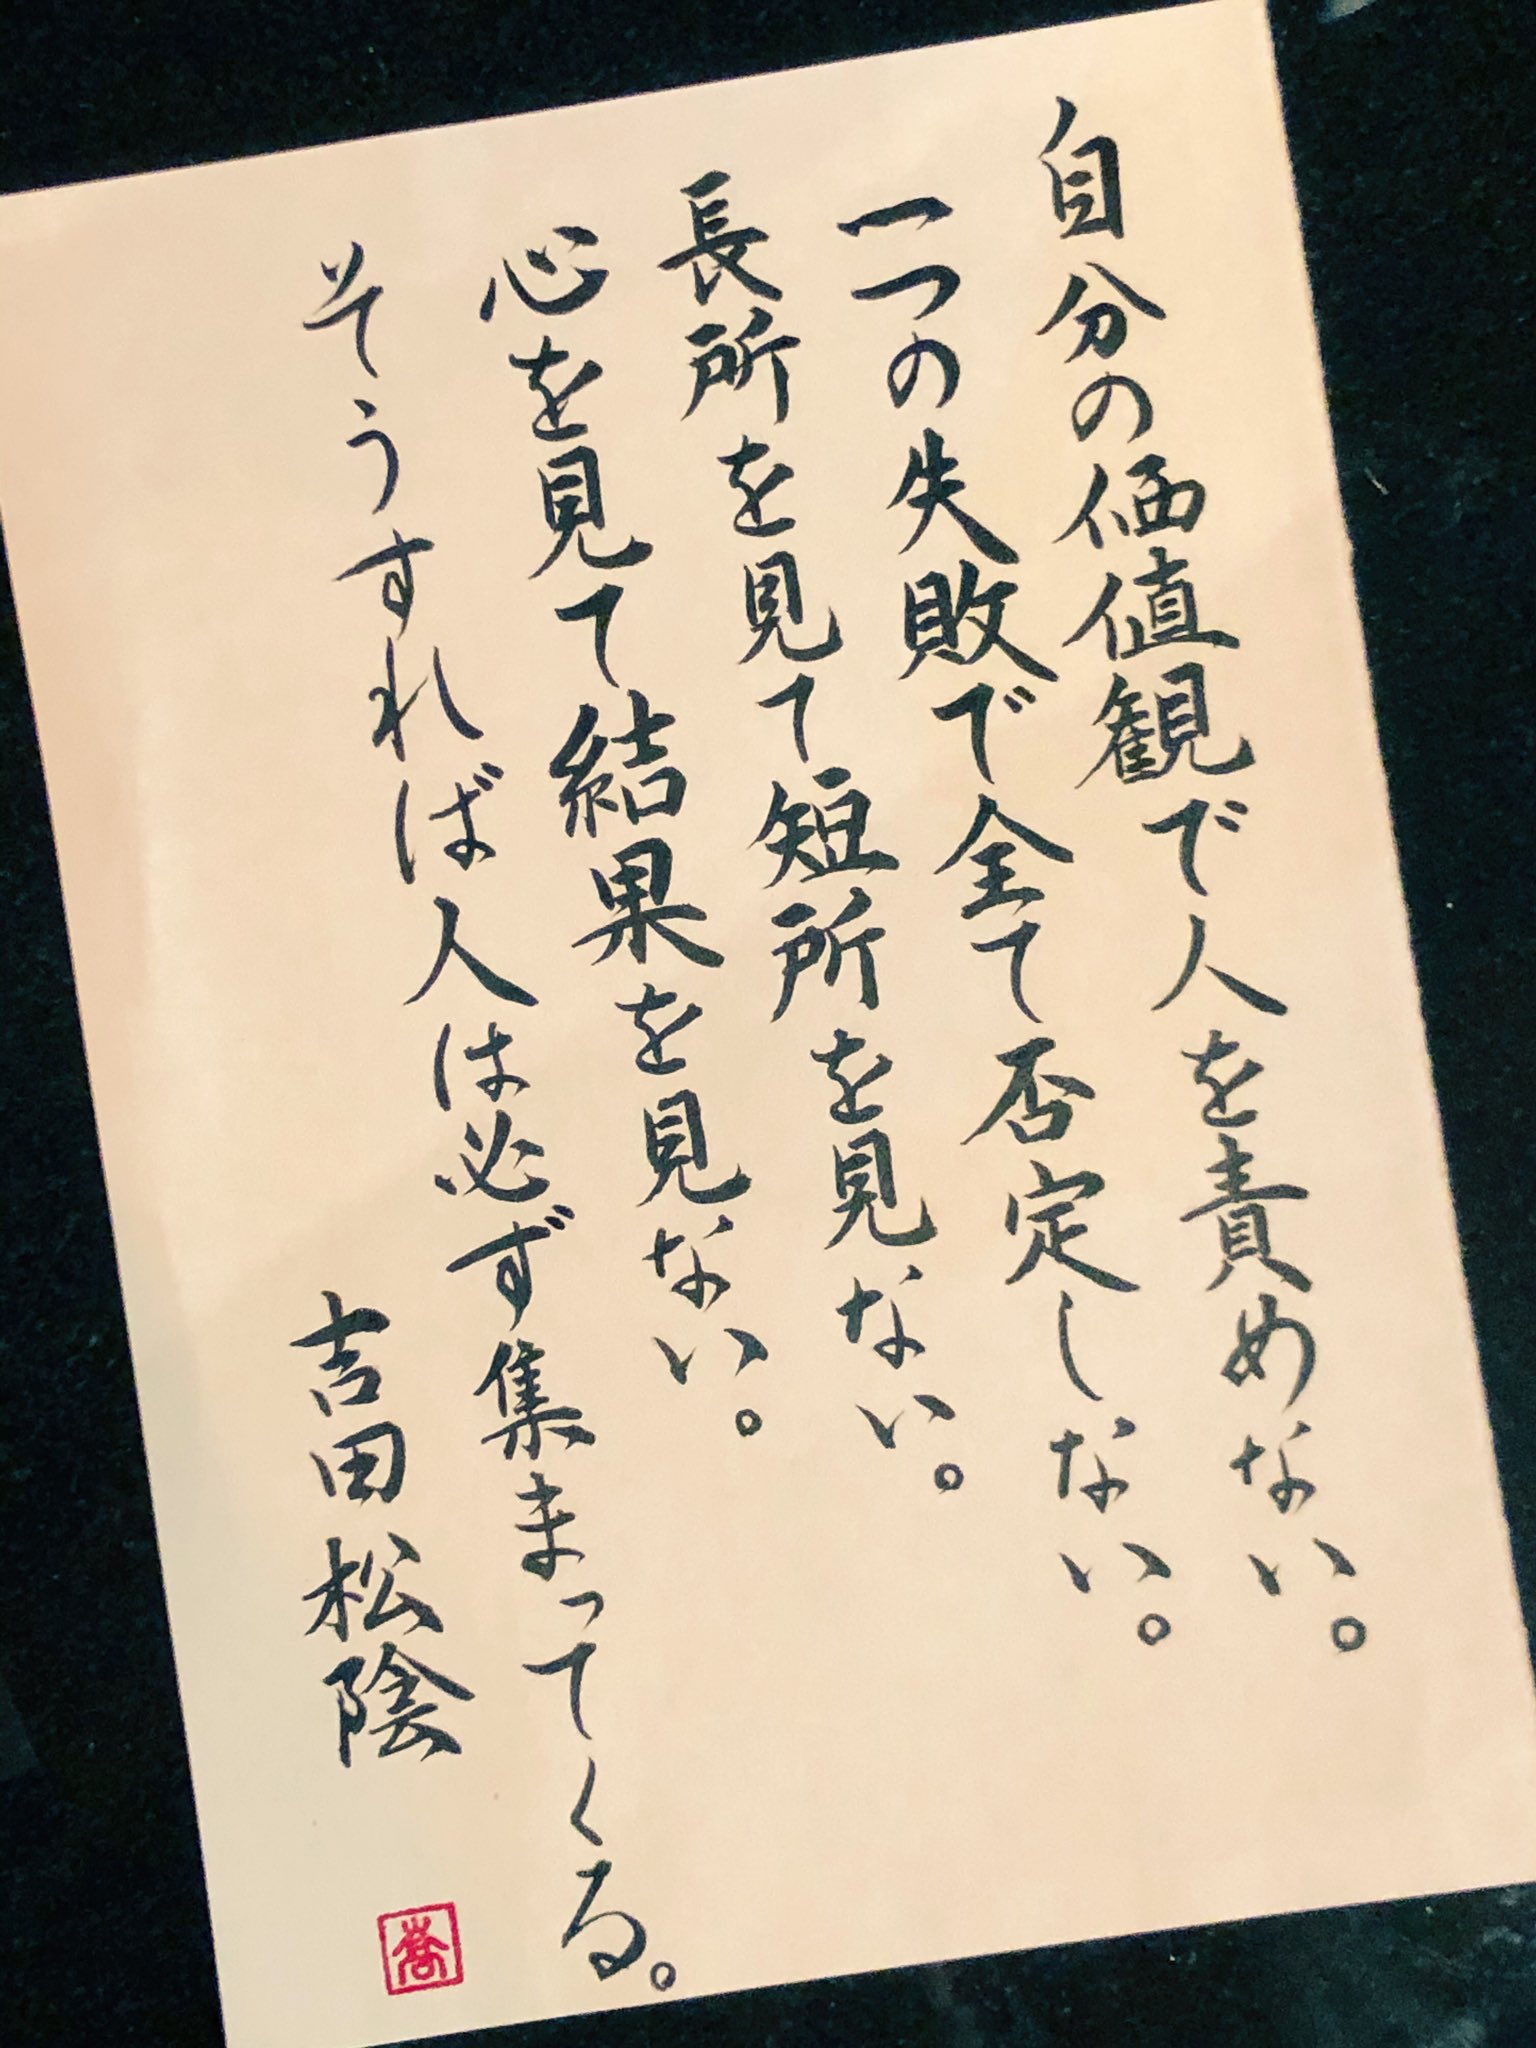 自分の価値観で人を責めない。
一つの失敗で全て否定しない。
長所を見て短所を見ない。
心を見て結果を見ない。
そうすれば人は必ず集まってくる。
吉田松陰